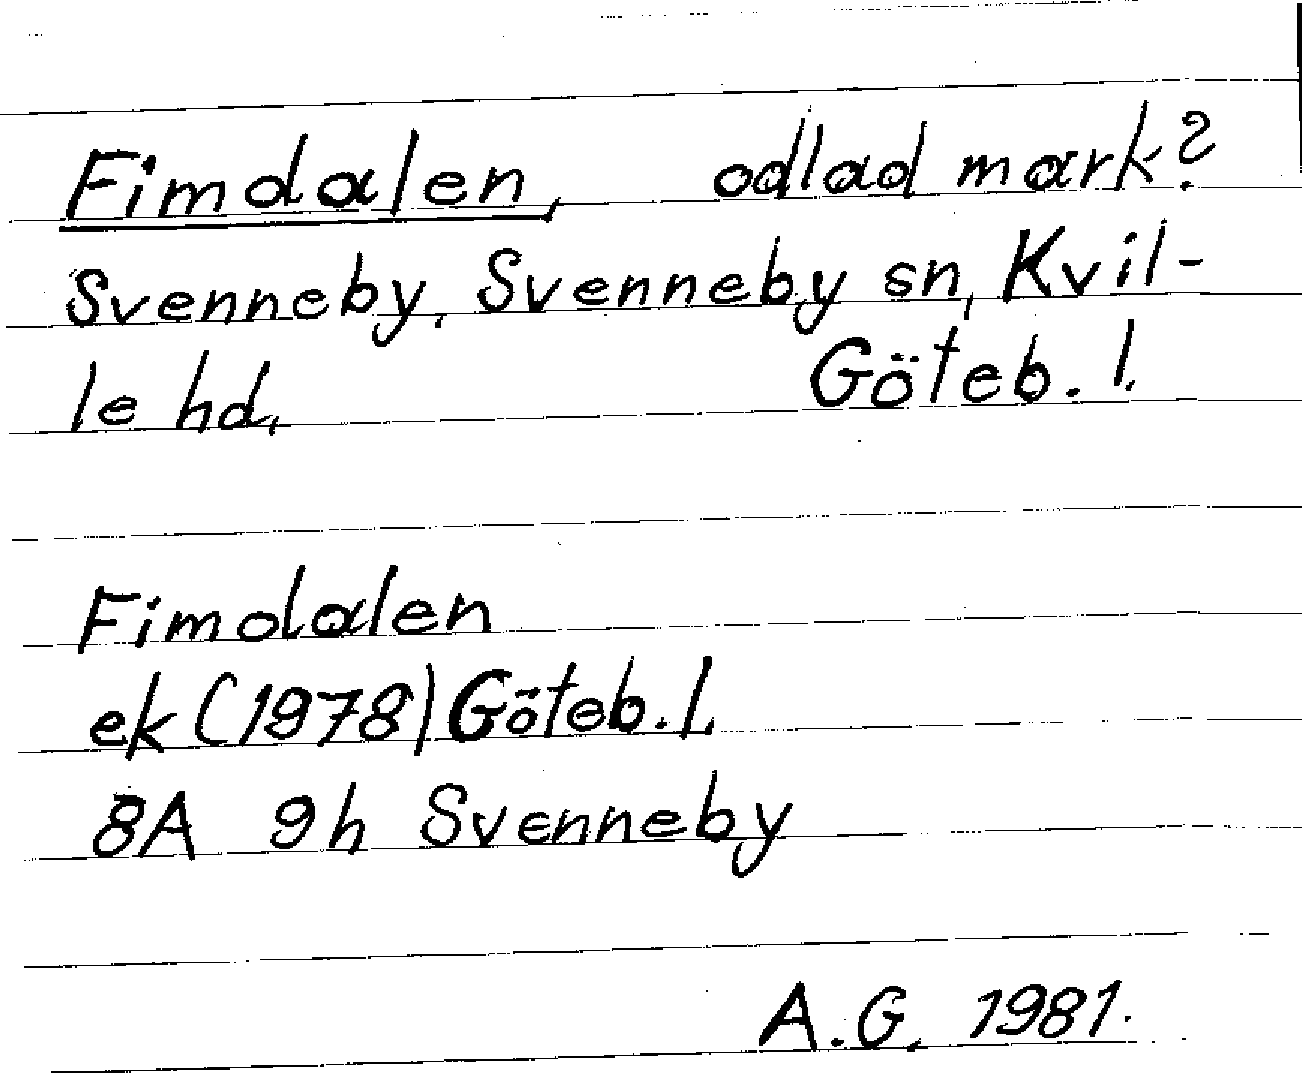 Fimdalen, odlad mark?
Svenneby, Svenneby sn, Kvil-
le hd, Göteb. l.
Fimdalen
ek (1978) Göteb. l.
8A 9h Svenneby
A.G. 1981.